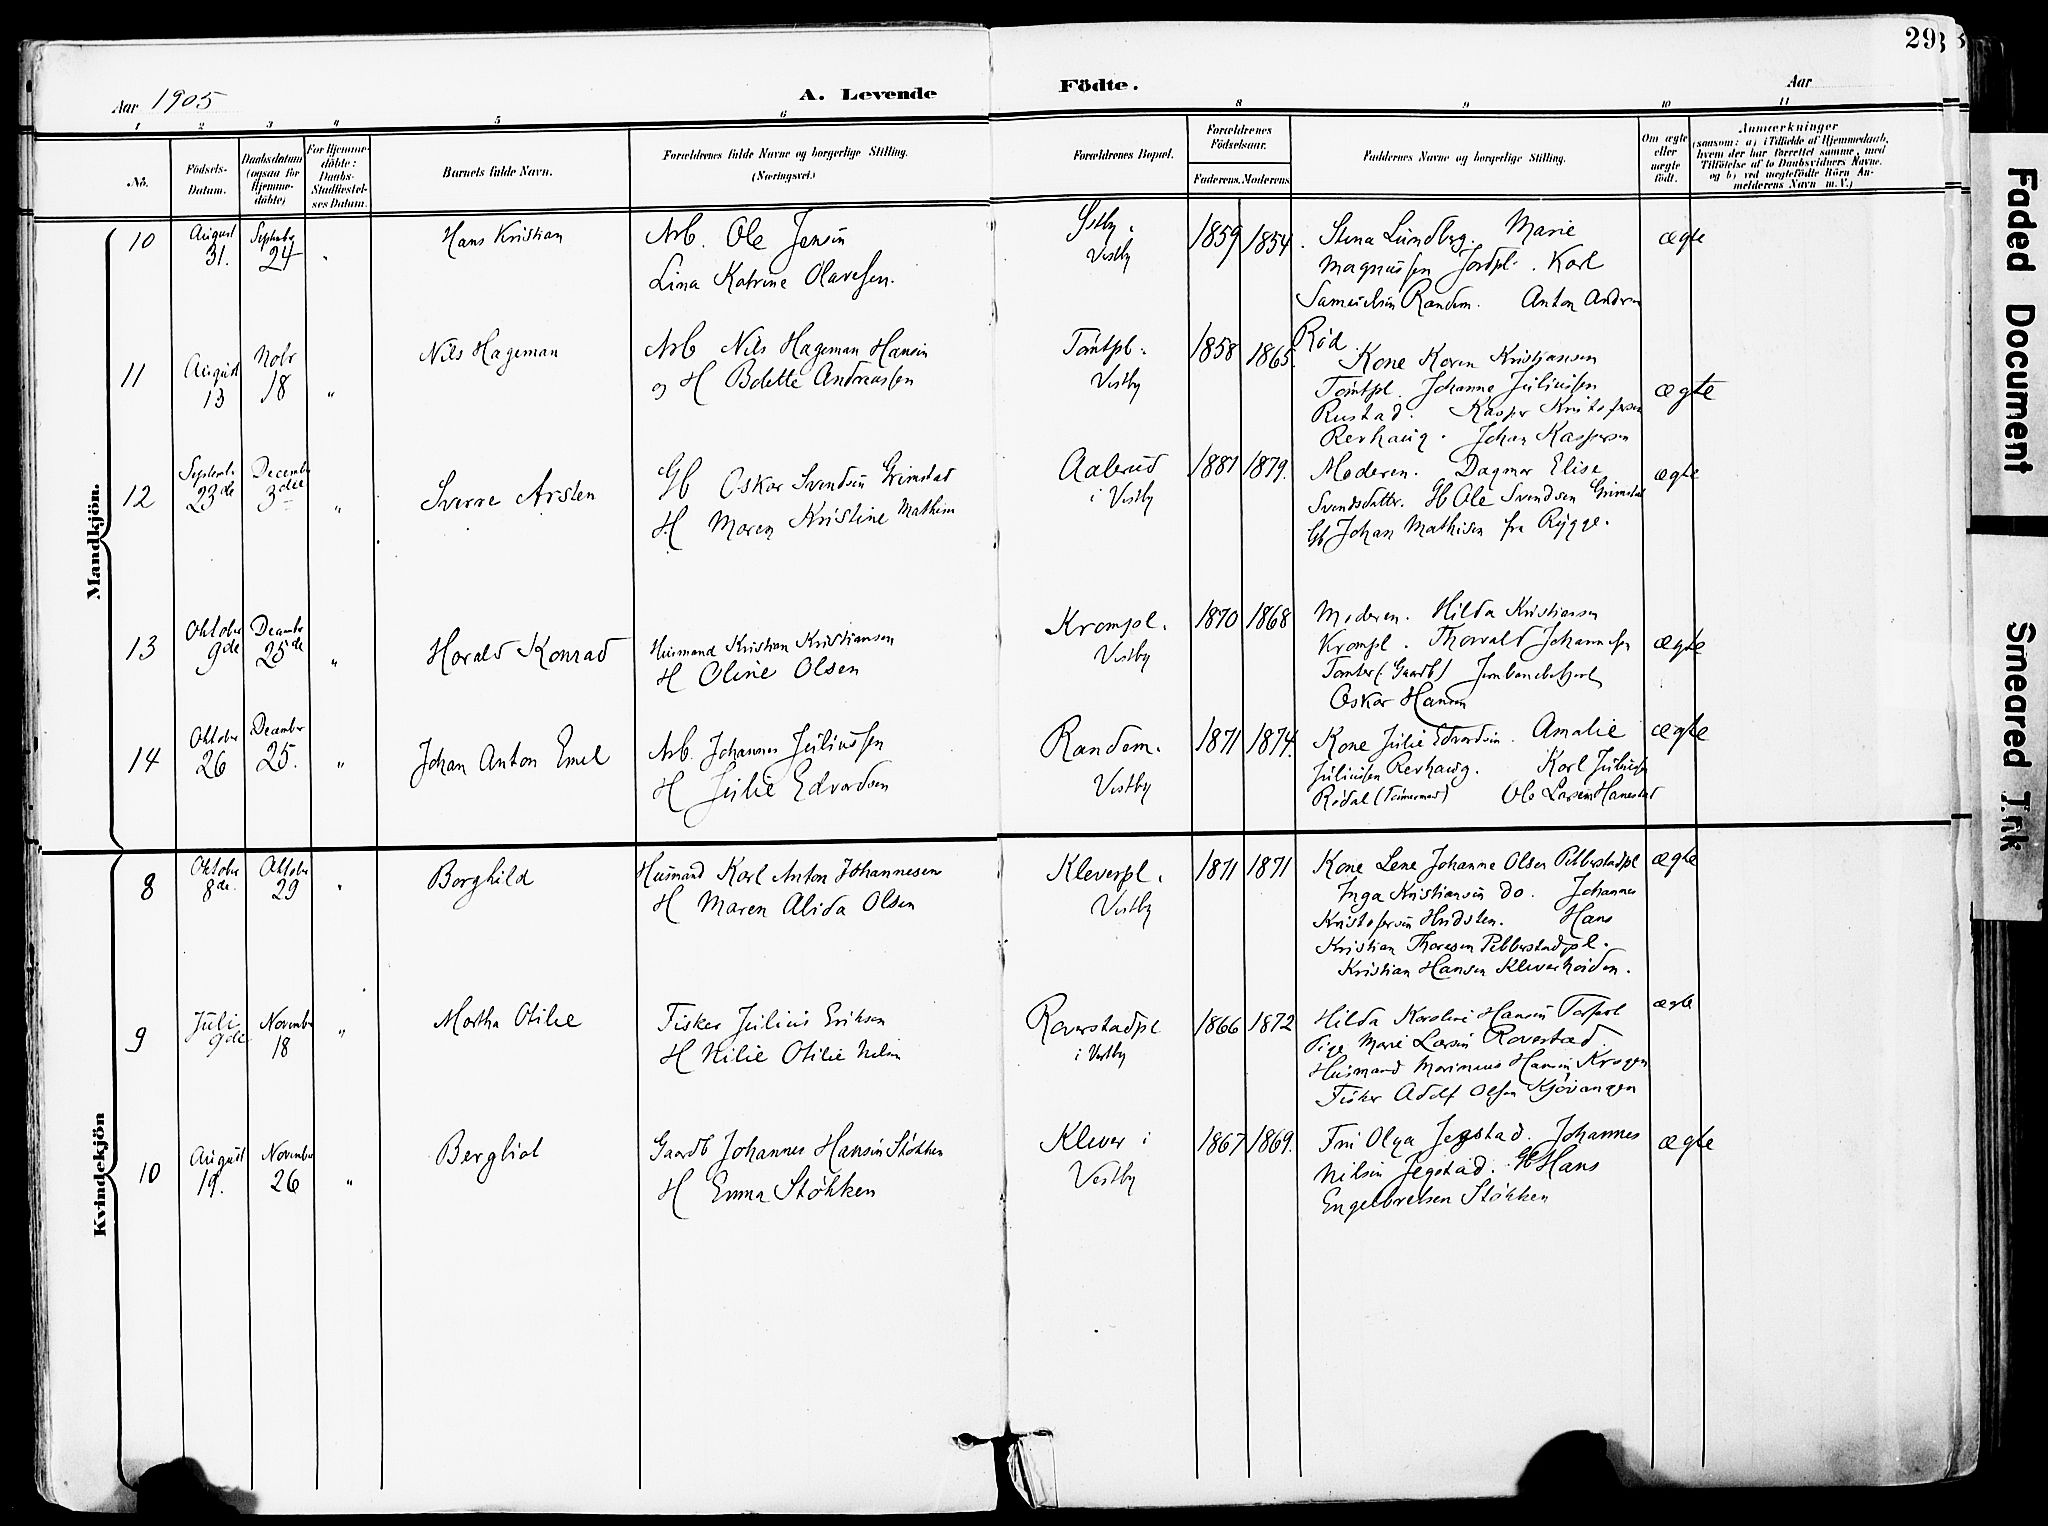 29
Aar 1905
A. Levende
Födte.
Aar
1 2 3 4 5 6 8 9 10 11
No.
Födsels-
Datum.
Daabsdatum
(ogsaa for
Hjemme-
döbte)
For Hjemme-
döbte:
Daabs-
Stadfæstel-
ses Datum.
Barnets fulde Navn.
Forældrenes fulde Navne og borgerlige Stilling.
(Næringsvei.)
Forældrenes Bopæl.
Forældrenes
Födselsaar.
Faderens. Moderens.
Faddernes Navne og borgerlige Stilling.
Om ægte
eller
uægte
født.
Anmærkninger
(saasom: a) i Tilfælde af Hjemmedaab,
hvem der har forrettet samme, med
Tilföielse af to Daabsvidners Navne.
og b) ved uægtefödte Börn An-
melderens Navn m. V.)
Mandkjön.
10
August
31.
Septbr
24
"
Hans Kristian
Arb. Ole Jensen
Lina Katrine Olavesen.
Vestby
1859 1854.
Stina Lundberg. Marie
Magnussen Jordpl. Karl
Samuelsen Randem. Anton Andrea
Röd.
ægte
11
August
13
Nobr
18
"
Nils Hageman
Arb Nils Hageman Hansen
og H Bolette Andreassen
Tomtpl.
Vestby
1858 1865.
Kone Karen Kristiansen
Tomtpl. Johanne Juliussen
Rustad. Kasper Kristofersen
Rerhaug. Johan Kaspersen
ægte
12
Septembr
23de
December
3die
"
Sverre Arsten
Gb Oskar Svendsen Grimstad
H Maren Kristine Mathisen
Aalerud
i Vestby
1881 1879.
Moderen. Dagmar Elise
Svendsdatter. Gb Ole Svendsen Grimstad
Gb Johan Mathisen fra Rygge.
ægte
13
Oktober
9de
Decembr
25de
"
Harald Konrad
Husmand Kristian Kristiansen
H Oline Olsen
Krompl.
Vestby
1870 1868
Moderen. Hilda Kristiansen
Krompl. Thorvald Johannesen
Tomter (Gaardb) Jernbanebetjent
Oskar Hansen
ægte
14
Oktober
26
December
25.
"
Johan Anton Emil
Arb. Johannes Juliussen
H Julie Edvardsen
Randem.
Vestby
1871 1874.
Kone Julie Edvardsen. Amalie
Juliussen Rerhaug. Karl Juliussen
Rödal (Tömmermd) Ole Larsen Hanestad
ægte
Kvindekjön
8
Oktober
8de.
Oktober
29
"
Borghild
Husmand Karl Anton Johannesen
H Maren Alida Olsen
Kleverpl.
Vestby
1871 1871
Kone Lene Johanne Olsen Pebberstadpl
Inga Kristiansen do. Johannes
Kristofersen Hvidsten. Hans
Kristian Thoresen Pebberstadpl.
Kristian Hansen Kleverheiden.
ægte
9
Juli
9de
November
18
"
Martha Otilie
Fisker Julius Eriksen
H Nilie Otilie Nilsen
Raverstadpl
i Vestby
1866 1872
Hilda Karoline Hansen
Pige Marie Larsen Raverstad.
Husmand Marinius Hansen Krogen
Fisker Adolf Olsen Kjövangen
ægte
10
August
19.
November
26
"
Bergliot
Gaardb Johannes Hansen Stökken
H Emma Stökken
Klever i
Vestby
1867 1869.
Fru Olga Jegstad. Johannes
Nilsen Jegstad. Gb Hans
Engelbretsen Stökken
ægte
Faded Document
Smeared Ink